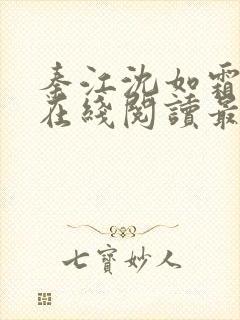 秦江沈如霜
在綫閱讀最
七寶妙人